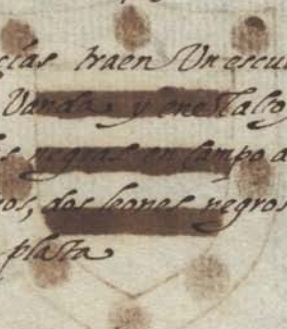 cias traen Un escu
Vanda y en el alto
s negras en campo d
os, dos leones negros
plata